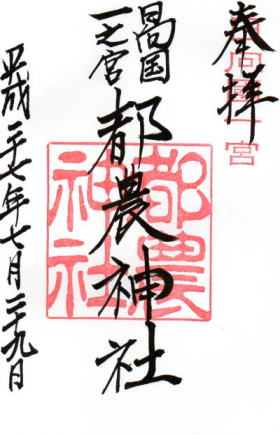 奉拝
日向國一宮
日向国
一之宮
都農神社
都農
神社
平成二十七年七月二十九日